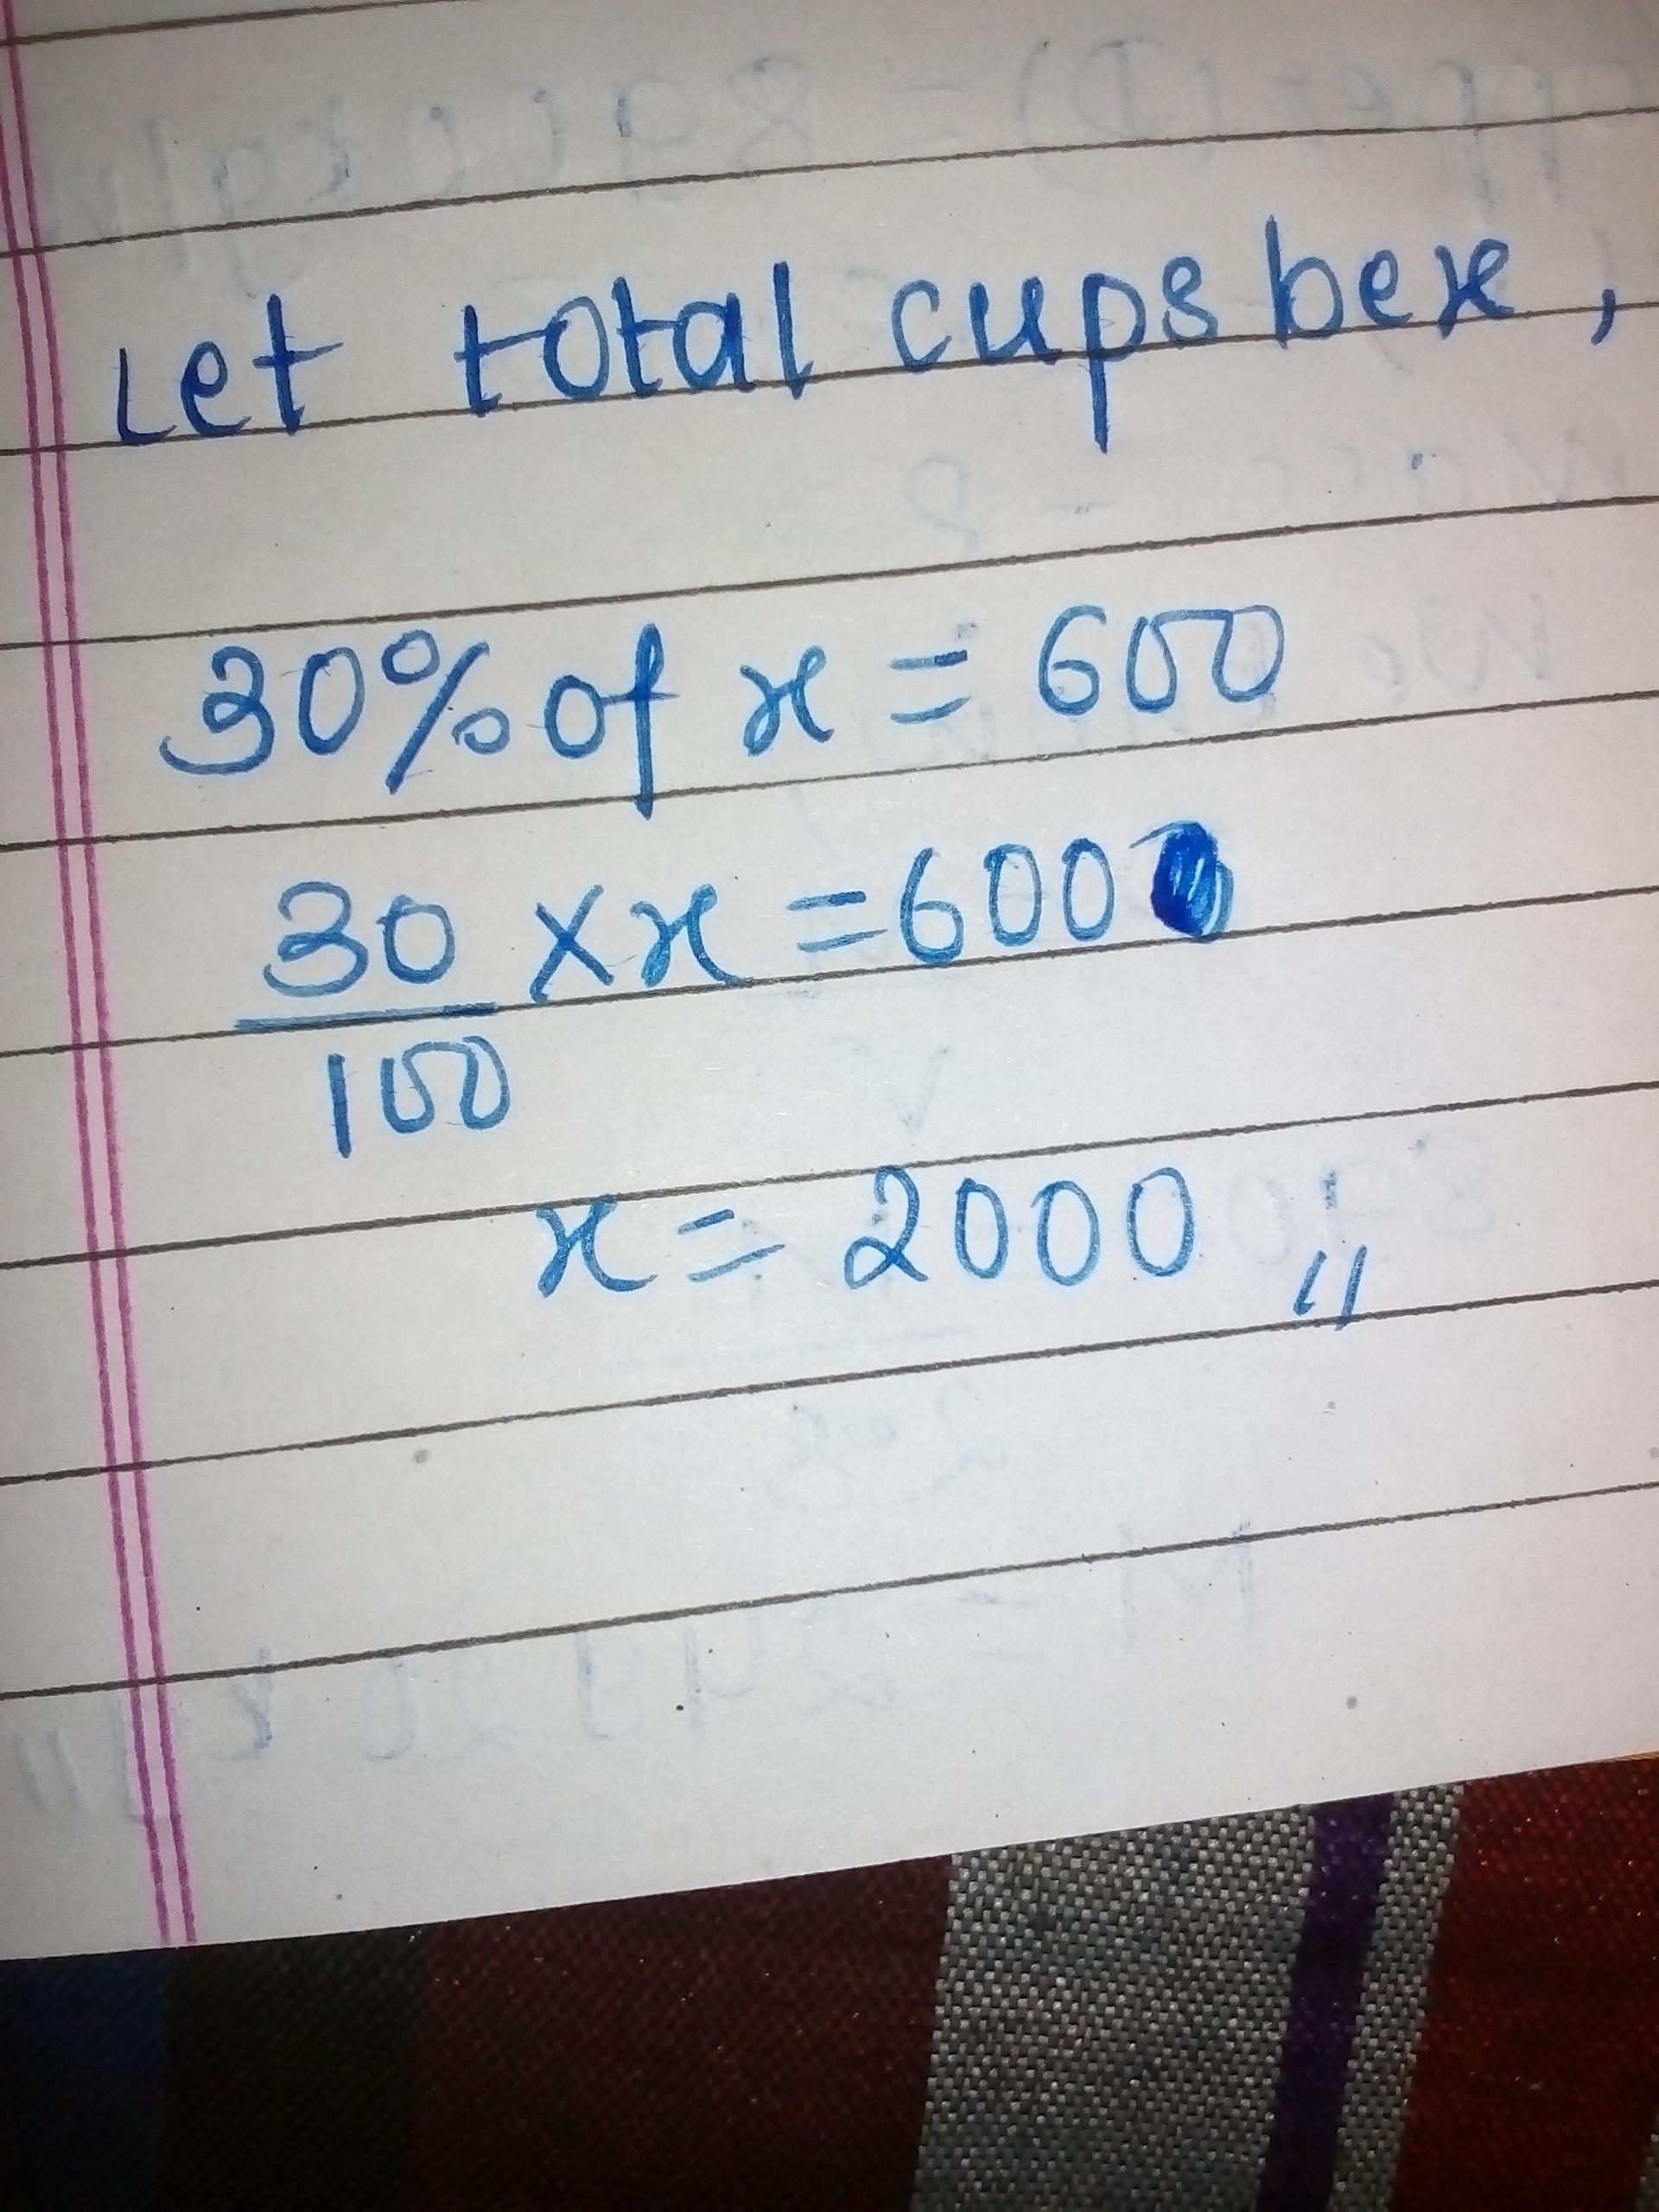 Let total cups be x,
30% of x = 600
30/100 × x = 600
x = 2000 ,,